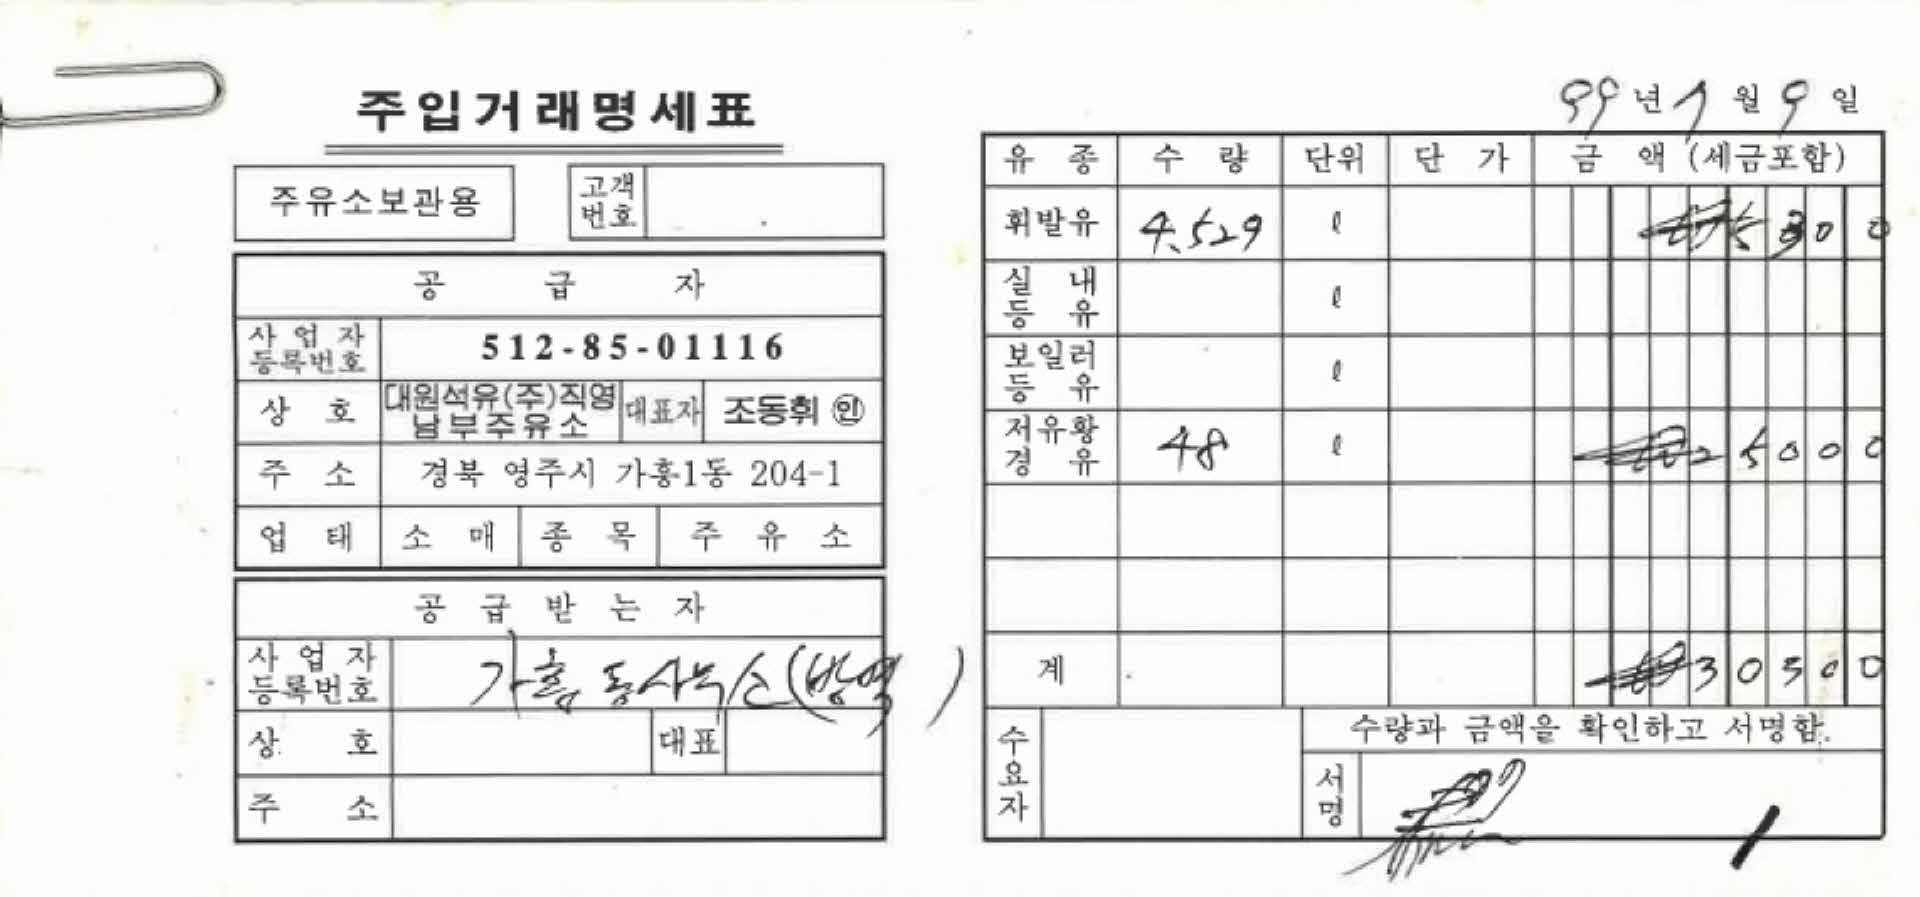 주입거래명세표
주유소보관용 고객번호
공급자
사업자등록번호 512-85-01116
상호 대원석유(주)직영 남부주유소 대표자 조동휘 ㊞
주소 경북 영주시 가흥1동 204-1
업태 소매 종목 주유소
공급받는자
사업자등록번호 가흥1동사무소(방역)
상호 대표
주소
99년 7월 9일
유종 수량 단위 단가 금액(세금포함)
휘발유 4.529 ℓ 5300
실내등유 ℓ
보일러등유 ℓ
저유황경유 48 ℓ 25000
계 30300
수요자 수량과 금액을 확인하고 서명함.
서명